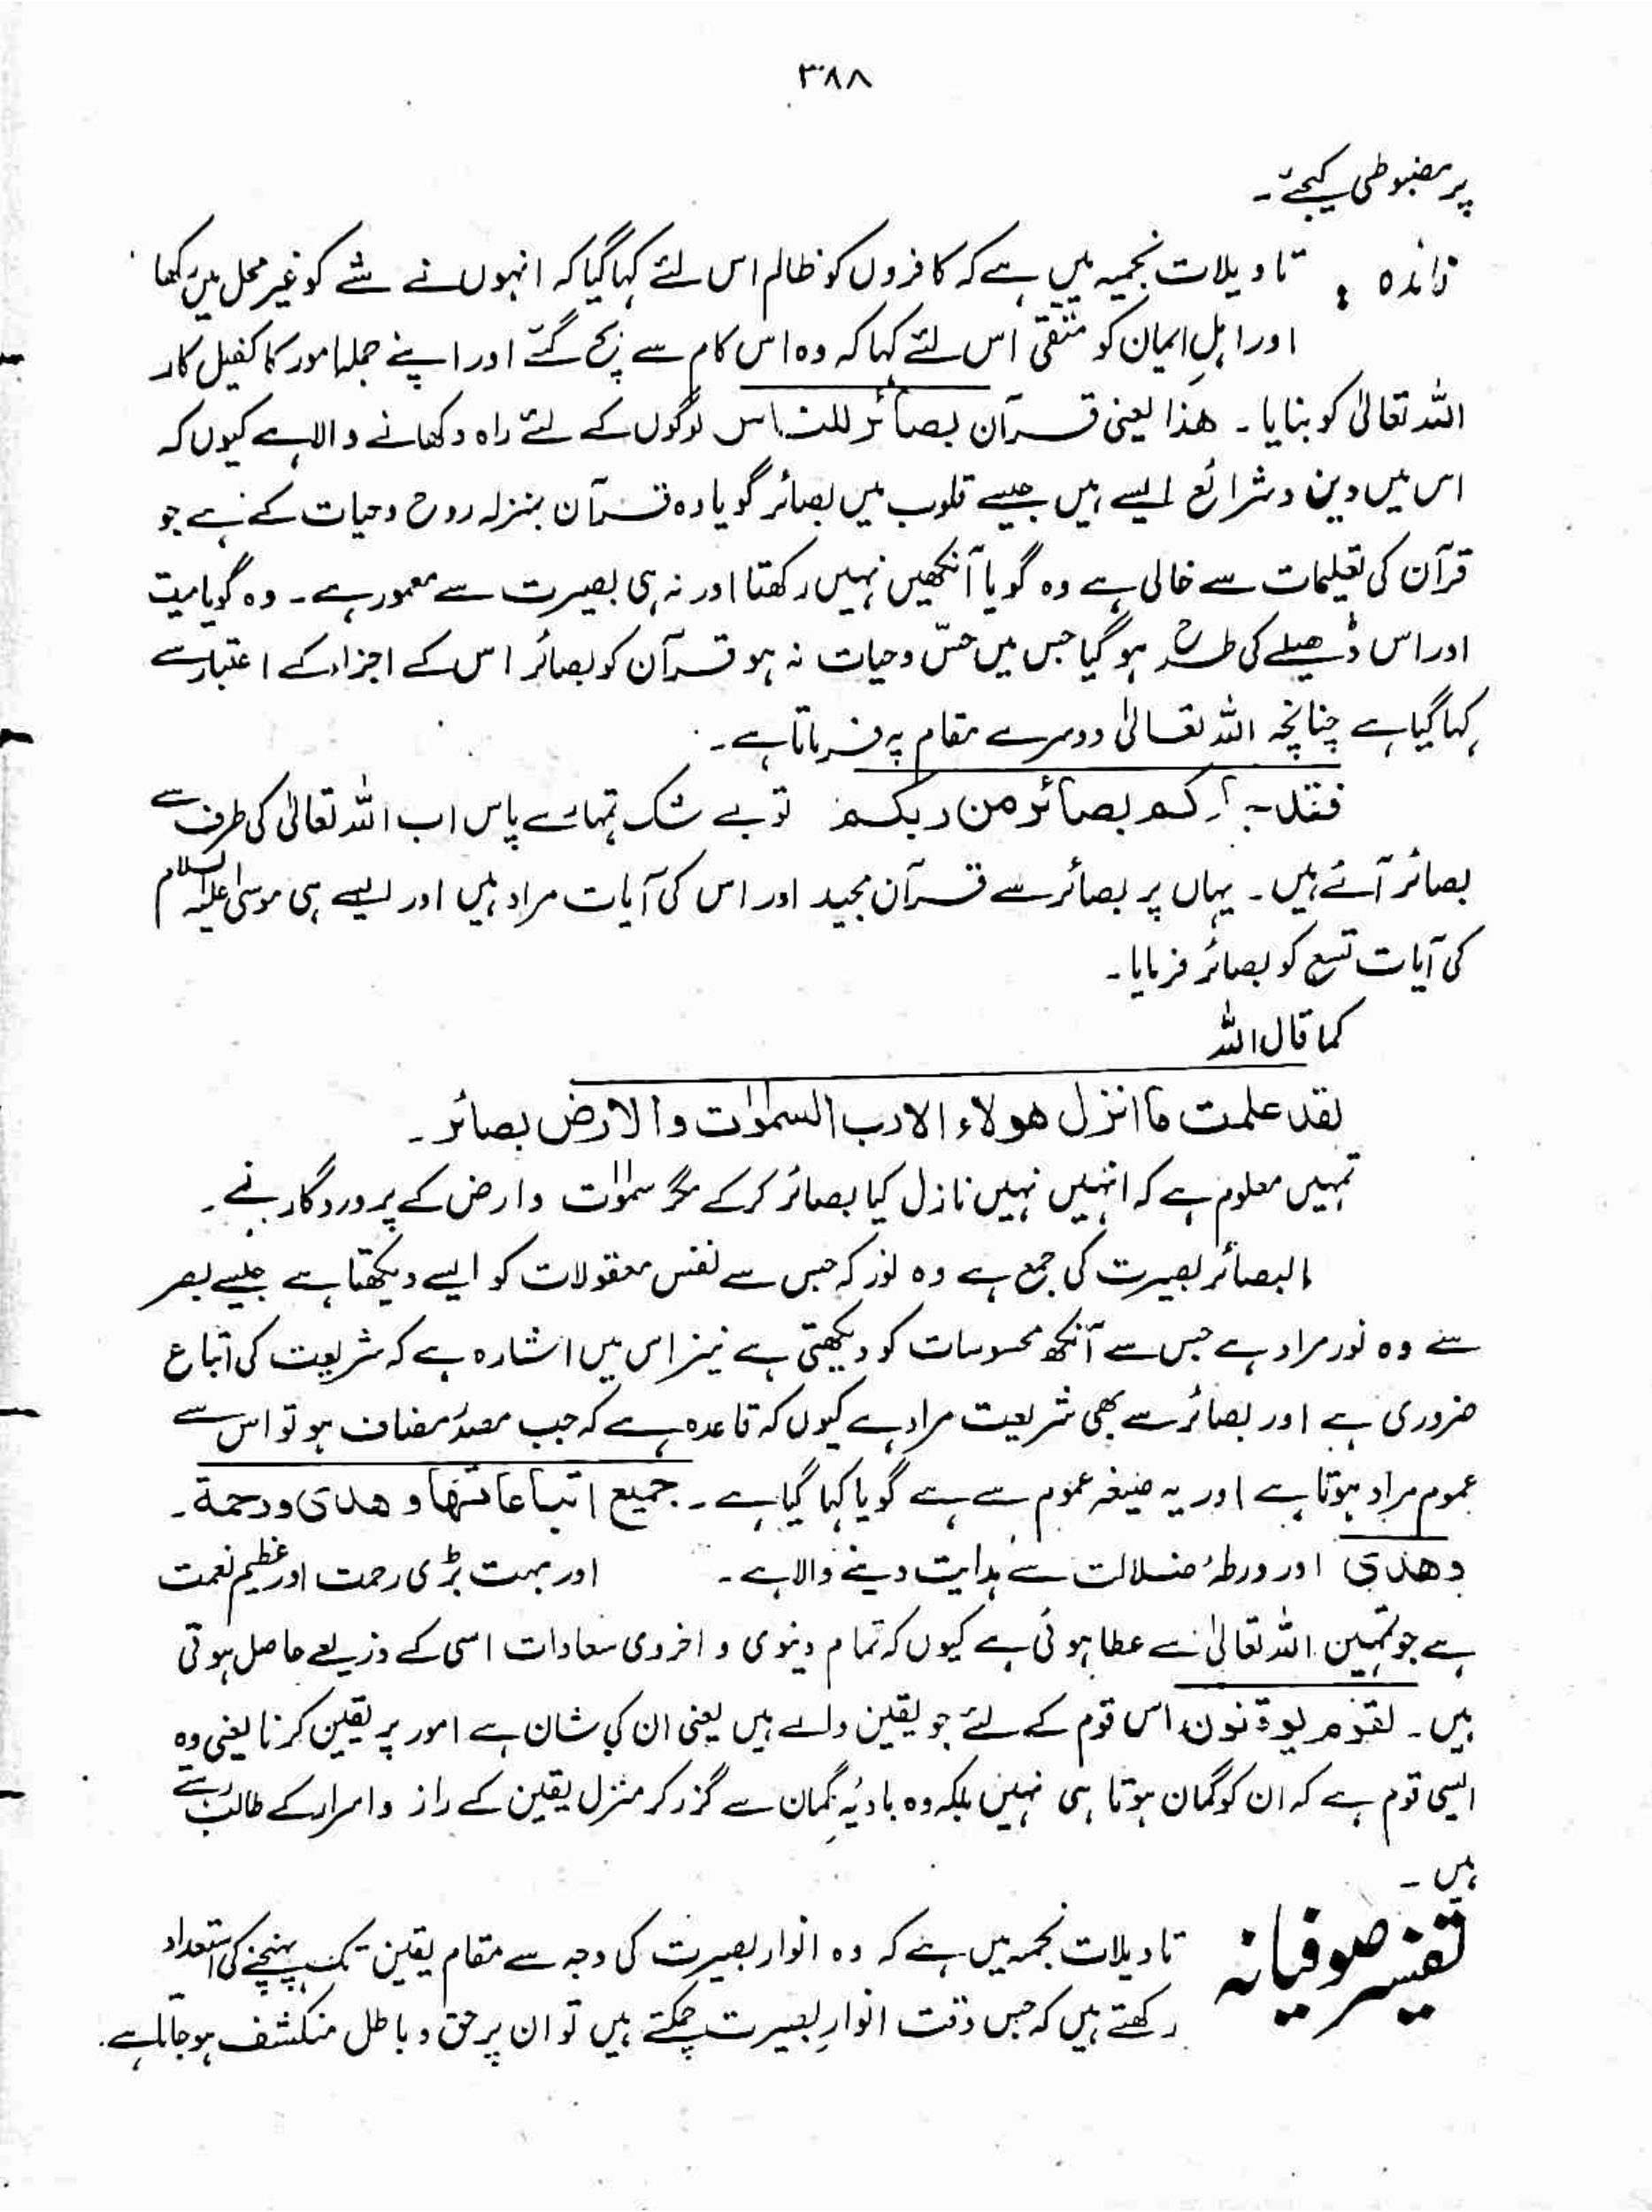 ۳۸۸
پر مضبوطی کیجئے۔
فائدہ : تاویلات نجمیہ میں ہے کہ کافروں کو ظالم اس لئے کہا گیا کہ انہوں نے شے کو غیر محل میں رکھا
اور اہلِ ایمان کو متقی اس لئے کہا کہ وہ اس کام سے بچ گئے اور اپنے جملہ امور کا کفیل کار
اللہ تعالیٰ کو بنایا ۔ ھٰذا یعنی قرآن بصائر للناس لوگوں کے لئے راہ دکھانے والا ہے کیوں کہ
اس میں دین و شرائع ایسے ہیں جیسے قلوب میں بصائر گویا وہ قرآن بمنزلہ روح و حیات کے ہے جو
قرآن کی تعلیمات سے خالی ہے وہ گویا آنکھیں نہیں رکھتا اور نہ ہی بصیرت سے معمور ہے۔ وہ گویا میت
اور اس ڈھیلے کی طرح ہو گیا جس میں حسّ و حیات نہ ہو قرآن کو بصائر اس کے اجزاء کے اعتبار سے
کہا گیا ہے چنانچہ اللہ تعالیٰ دوسرے مقام پہ فرماتا ہے۔
فقد جاءکم بصائر من ربکم تو بے شک تمہارے پاس اب اللہ تعالیٰ کی طرف سے
بصائر آئے ہیں ۔ یہاں پر بصائر سے قرآن مجید اور اس کی آیات مراد ہیں اور ایسے ہی موسیٰ علیہ السلام
کی آیات تسع کو بصائر فرمایا۔
کما قال اللہ
لقد علمت ما انزل ھولاء الا رب السمٰوٰت والارض بصائر۔
تمہیں معلوم ہے کہ انہیں نہیں نازل کیا بصائر کرکے مگر سمٰوٰت و ارض کے پروردگار نے۔
البصائر بصیرت کی جمع ہے وہ نور کہ جس سے نفس معقولات کو ایسے دیکھتا ہے جیسے بصر
سے وہ نور مراد ہے جس سے آنکھ محسوسات کو دیکھتی ہے نیز اس میں اشارہ ہے کہ شریعت کی اتباع
ضروری ہے اور بصائر سے بھی شریعت مراد ہے کیوں کہ قاعدہ ہے کہ جب مصدر مضاف ہو تو اس سے
عموم مراد ہوتا ہے اور یہ صیغہ عموم سے ہے گویا کہا گیا ہے۔ جمیع اتباعاتھا و ھدی و رحمۃ۔
وھدی اور ورطۂ ضلالت سے ہدایت دینے والا ہے۔ اور بہت بڑی رحمت اور عظیم نعمت
ہے جو تمہیں اللہ تعالیٰ سے عطا ہوئی ہے کیوں کہ تمام دنیوی و اخروی سعادات اسی کے ذریعے حاصل ہوتی
ہیں۔ لقوم یوقنون اس قوم کے لئے جو یقین والے ہیں یعنی ان کی شان ہے امور پر یقین کرنا یعنی وہ
ایسی قوم ہے کہ ان کو گمان ہوتا ہی نہیں بلکہ وہ بادیۂ گمان سے گزر کر منزل یقین کے راز و اسرار کے طالب رہتے
ہیں۔
تفسیر صوفیانہ تاویلات نجمیہ میں ہے کہ وہ انوار بصیرت کی وجہ سے مقام یقین تک پہنچنے کی استعداد
رکھتے ہیں کہ جس وقت انوارِ بصیرت چمکتے ہیں تو ان پر حق و باطل منکشف ہو جاتا ہے۔